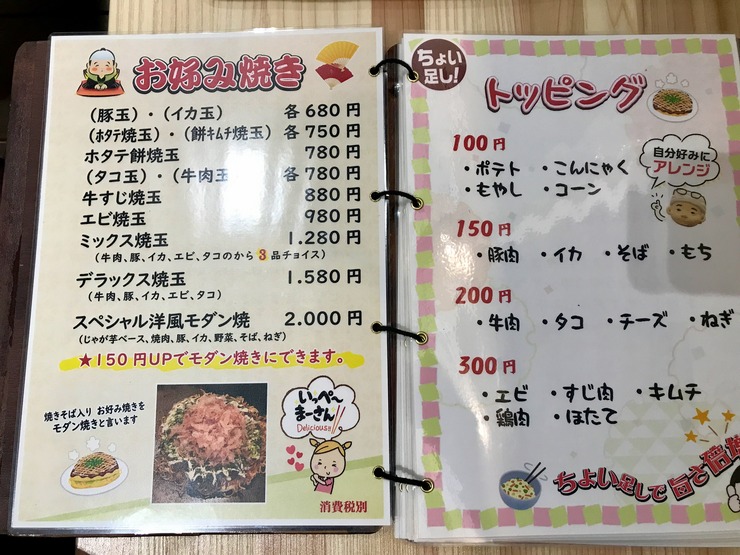 お好み焼き
（豚玉）・（イカ玉） 各 680 円
（ﾎﾀﾃ焼玉）・（餅ｷﾑﾁ焼玉） 各 750 円
ホタテ餅焼玉 780 円
（タコ玉）・（牛肉玉 各 780 円
牛すじ焼玉 880 円
エビ焼玉 980 円
ミックス焼玉 1.280 円
（牛肉、豚、イカ、エビ、タコのから 3 品チョイス）
デラックス焼玉 1.580 円
（牛肉、豚、イカ、エビ、タコ）
スペシャル洋風モダン焼 2.000 円
（じゃが芋ベース、焼肉、豚、イカ、野菜、そば、ねぎ）
★150円UPでモダン焼きにできます。
焼きそば入り お好み焼きを
モダン焼きと言います
いっぺ～
まーさん!!
Delicious!!
消費税別
ちょい
足し！
トッピング
100円
・ポテト ・こんにゃく
・もやし ・コーン
自分好みに
アレンジ
150円
・豚肉 ・イカ ・そば ・もち
200円
・牛肉 ・タコ ・チーズ ・ねぎ
300円
・エビ ・すじ肉 ・キムチ
・鶏肉 ・ほたて
ちょい足しで旨さ倍増